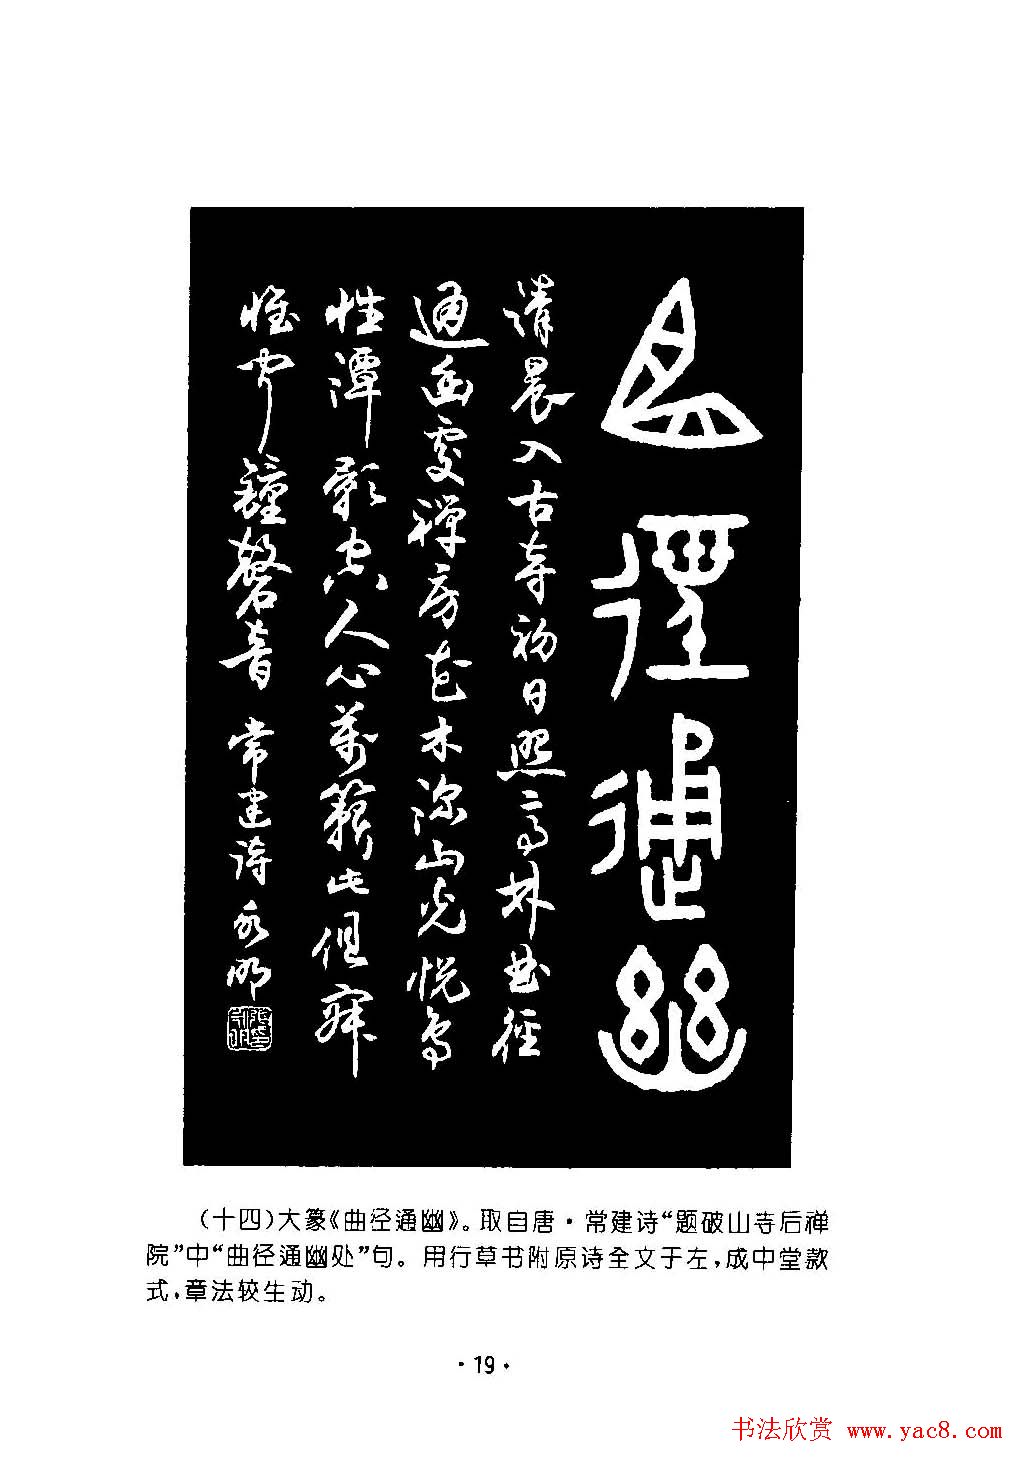 曲徑通幽
清晨入古寺初日照高林曲徑
通幽處禪房花木深山光悦鳥
性潭影空人心萬籟此俱寂
惟聞鐘磬音 常建詩 永明
(十四)大篆《曲径通幽》。取自唐·常建诗“题破山寺后禅
院”中“曲径通幽处”句。用行草书附原诗全文于左,成中堂款
式,章法较生动。
·19·
书法欣赏 www.yac8.com